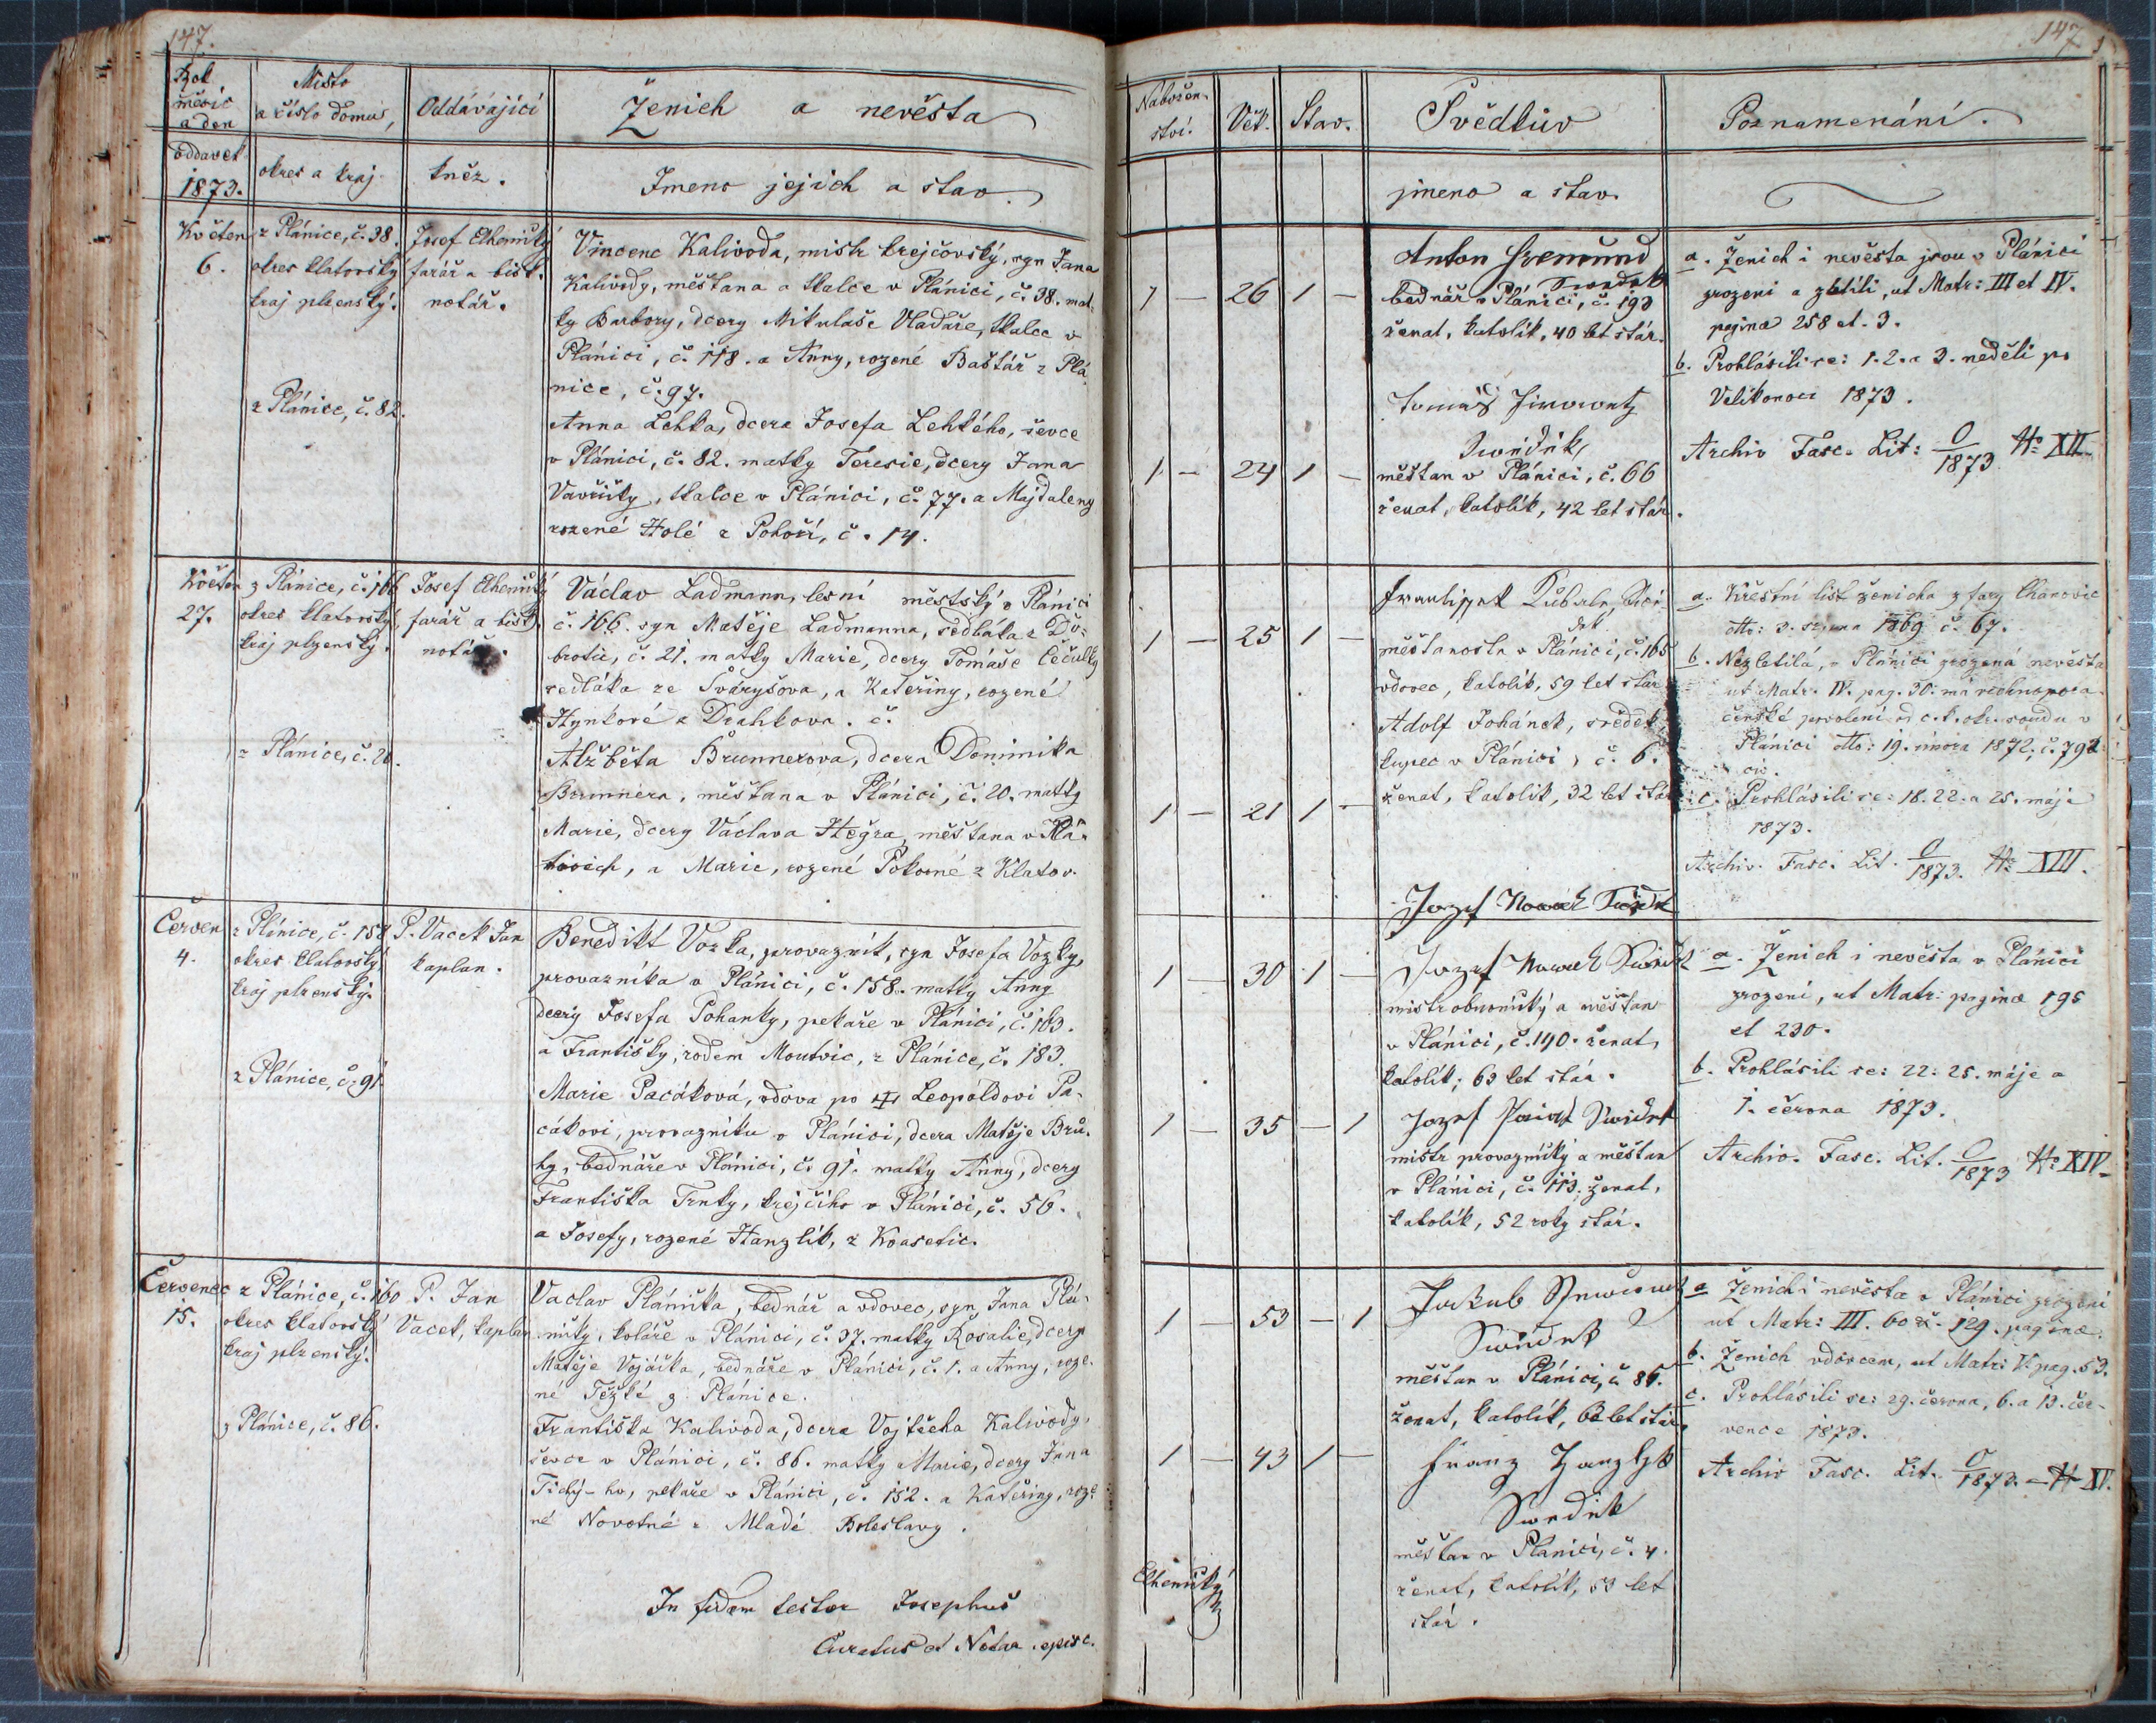 147.
Rok
měsíc
a den
oddavek
1873.
Místo
a číslo domu,
okres a kraj
Oddávající
kněz.
Ženich a nevěsta
Jmeno jejich a stav.
Květen
6.
z Plánice, č. 38.
okres klatovský
kraj plzenský.
z Plánice, č. 82.
Josef Elhenický
farář a bisk.
notář.
Vincenc Kalivoda, mistr krejčovský, syn Jana
Kalivody, měštana a tkalce v Plánici, č. 38. mat-
ky Barbory, dcery Mikulaše Vladaře, tkalce v
Plánici, č. 118. a Anny, rozené Baštář z Plá-
nice, č. 97.
Anna Lehka, dcera Josefa Lehkého, ševce
v Plánici, č. 82. matky Teresie, dcery Jana
Vavřičky, tkalce v Plánici, č. 77. a Majdaleny
rozené Holé z Pohoří, č. 14.
Květen
27.
z Plánice, č. 166
okres klatovský,
kraj plzenský.
z Plánice, č. 20.
Josef Elhenický
farář a bisk.
notář.
Václav Ladmann, lesní městský v Plánici
č. 166. syn Matěje Ladmanna, sedláka z Do-
brotic, č. 21. matky Marie, dcery Tomáše Čečulky
sedláka ze Svaryšova, a Kateřiny, rozené
Hynkové z Drahkova. č.
Alžběta Brunnerova, dcera Dominika
Brunnera, měštana v Plánici, č. 20. matky
Marie, dcery Václava Hegra, měštana v Kla-
tovech, a Marie, rozené Pokorné z Klatov.
Červen
4.
z Plánice, č. 158
okres klatovský,
kraj plzenský.
z Plánice, č. 91
P. Vacek Jan
kaplan.
Benedikt Vozka, provazník, syn Josefa Vozky,
provazníka v Plánici, č. 158. matky Anny
dcery Josefa Pohanky, pekaře v Plánici, č. 183.
a Františky, rodem Moutvic, z Plánice, č. 183.
Marie Pacáková, vdova po Leopoldovi Pa-
cákovi, provazníku v Plánici, dcera Matěje Brů-
hy, bednáře v Plánici, č. 91. matky Anny, dcery
Františka Trnky, krejčího v Plánici, č. 56.
a Josefy, rozené Hanzlík, z Kvasetic.
Červenec
15.
z Plánice, č. 160
okres klatovský
kraj plzenský.
z Plánice, č. 86.
P. Jan
Vacek, kaplan
Vaclav Plánička, bednář a vdovec, syn Jana Plá-
ničky, koláře v Plánici, č. 37. matky Rosalie, dcery
Matěje Vojáčka, bednáře v Plánici, č. 1. a Anny, roze-
né Težké z Plánice.
Františka Kalivoda, dcera Vojtěcha Kalivody,
ševce v Plánici, č. 86. matky Marie, dcery Jana
Tichý-ho, pekaře v Plánici, č. 152. a Kateřiny, roze-
né Novotné z Mladé Boleslavy.
In fidem testor Josephus
Curatus et Notar. episc.
147
Nábožen-
ství.
Věk.
Stav.
Svědkův
jmeno a stav.
Poznamenání.
1 — 26 1 —
1 — 24 1 —
Anton
Swedek
bednář v Plánici, č. 193
ženat, katolík, 40 let stár.
Tomáš
Swědek
měštan v Plánici, č. 66
ženat, katolík, 42 let stár.
a. Ženich i nevěsta jsou v Plánici
zrozeni a zletilí, ut Matr: III et IV.
pagina 258 et. 3.
b. Prohlásili se: 1. 2. a 3. neděli po
Velikonoci 1873.
Archiv Fasc. Lit: O/1873 No XII
1 — 25 1 —
1 — 21 1 —
měštanosta v Plánici, č. 165
vdovec, katolík, 59 let stár
Adolf Johánek, svědek
kupec v Plánici, č. 6.
ženat, katolík, 32 let stár
a. Křestní list ženicha z fary Chanovic
dto: 3. 1869 č. 67.
b. Nezletilá, v Plánici zrozená nevěsta
ut Matr. IV. pag. 30. má
povolení od c. k. okr. soudu v
Plánici dto: 19. února 1872, č. 792
civ.
c. Prohlásili se: 18. 22. a 25. mája
1873.
Archiv. Fasc. Lit. O/1873. No XIII.
Jozef Nowak Swědek
1 — 30 1 —
1 — 35 — 1
Jozef Nowak Swědek
mistr obuvnický a měštan
v Plánici, č. 140. ženat,
katolík, 63 let stár.
Jozef Swědek
mistr provaznický a měštan
v Plánici, č. 113. ženat,
katolík, 52 roky stár.
a. Ženich i nevěsta v Plánici
zrozeni, ut Matr: paginæ 195
et 230.
b. Prohlásili se: 22: 25. máje a
1. června 1873.
Archiv. Fasc. Lit. O/1873 No XIV
1 — 53 — 1
1 — 43 1 —
Jakub
Swědek
měštan v Plánici, č. 86.
ženat, katolík, 63 let stár.
Franz Hanzlyk
Swedek
měštan v Plánici, č. 4.
ženat, katolík, 53 let
stár.
a Ženich i nevěsta v Plánici zrozeni
ut Matr: III. 60 et. 129. paginæ.
b. Ženich vdovcem, ut Matr: V pag. 53.
c. Prohlásili se: 29. června, 6. a 13. čer-
vence 1873.
Archiv Fasc. Lit. O/1873. No XV.
Elhenický